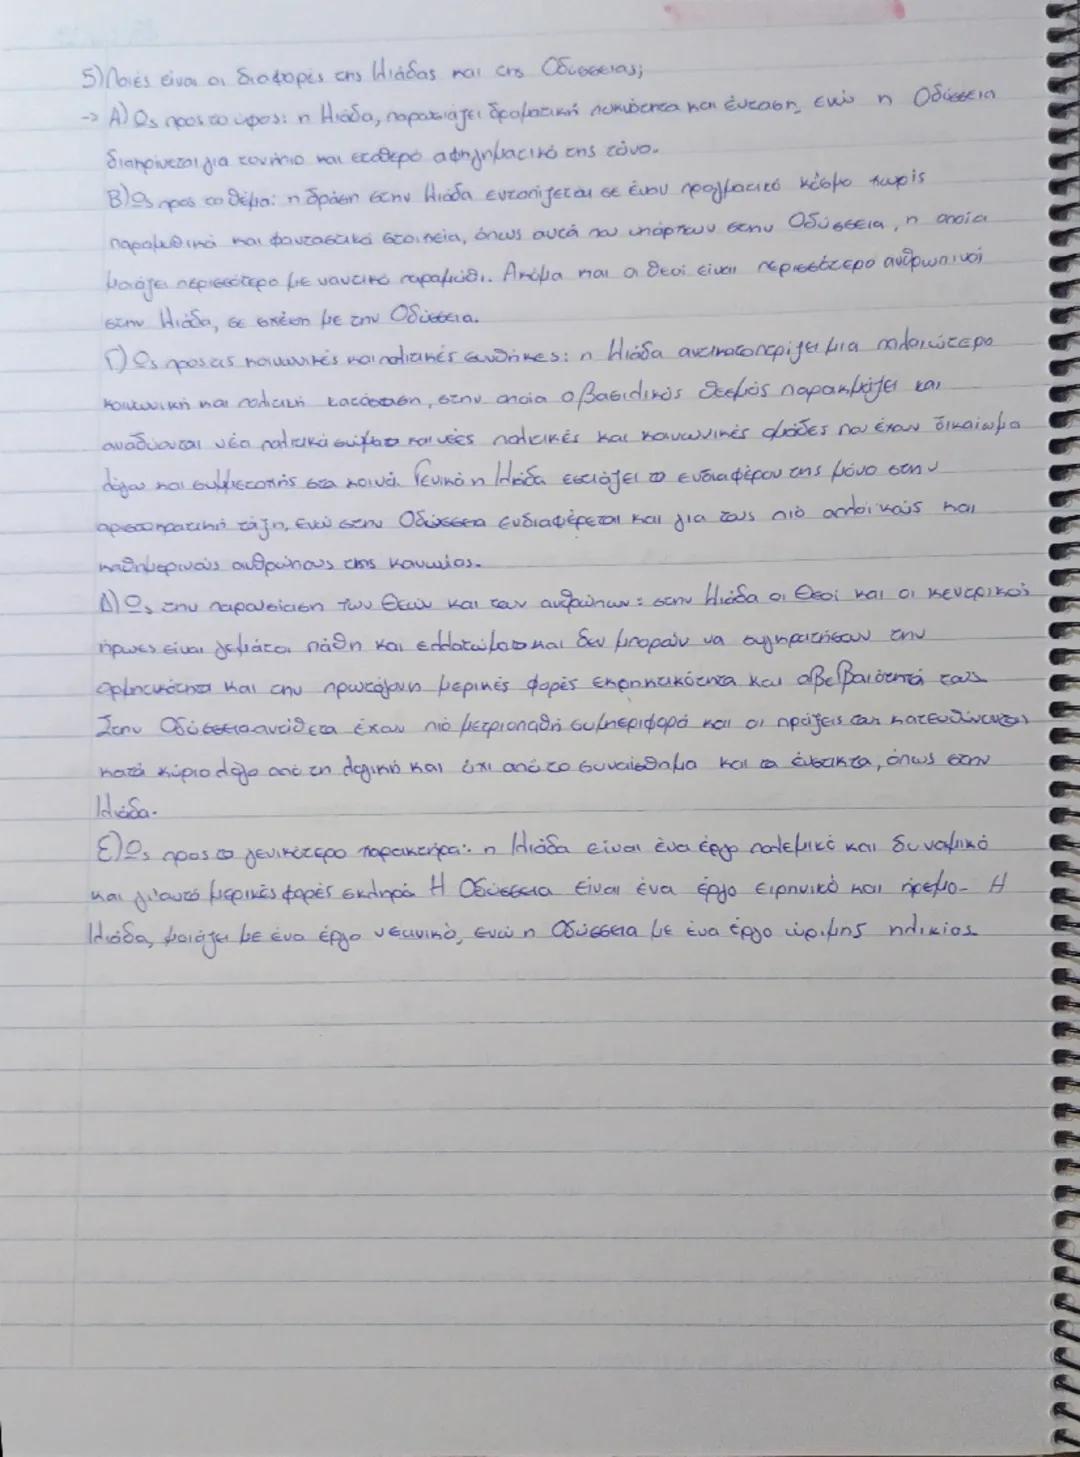 5) Ποιές είναι οι διαφορές της Ιλιάδας και της Οδύσσειας;
-> Α) Ως προς το ύφος: η Ιλιάδα, παρουσιάζει δραματική πυκνότητα και ένταση, ενώ η Οδύσσεια
διακρίνεται για τον ήπιο και σταθερό αφηγηματικό της τόνο.
Β) Ως προς το θέμα: η δράση στην Ιλιάδα εντοπίζεται σε έναν πραγματικό κόσμο χωρίς
παραμυθικά και φανταστικά στοιχεία, όπως αυτά που υπάρχουν στην Οδύσσεια, η οποία
μοιάζει περισσότερο με ναυτικό παραμύθι. Ακόμα και οι θεοί είναι περισσότερο ανθρώπινοι
στην Ιλιάδα, σε σχέση με την Οδύσσεια.
Γ) Ως προς τις κοινωνικές και πολιτικές συνθήκες: η Ιλιάδα αντικατοπτρίζει μια παλαιότερο
κοινωνική και πολιτική κατάσταση, στην οποία ο βασιλικός θεσμός παρακμάζει και
αναδύονται νέα πολιτικά σώματα και νέες πολιτικές και κοινωνικές ομάδες που έχουν δικαίωμα
λόγου και συμμετοχής στα κοινά. Γενικά η Ιλιάδα εστιάζει το ενδιαφέρον της μόνο στην
αριστοκρατική τάξη, ενώ στην Οδύσσεια ενδιαφέρεται και για τους πιό απλοϊκούς και
καθημερινούς ανθρώπους της κοινωνίας.
Δ) Ως την παρουσίαση των Θεών και των ανθρώπων: στην Ιλιάδα οι Θεοί και οι κεντρικοί
ήρωες είναι γεμάτοι πάθη και ελλατώματα και δεν μπορούν να συγκρατήσουν την
ορμητικότητα και την πρωτόγονη μερικές φορές εκρηκτικότητα και αβεβαιότητά τους
Στην Οδύσσεια αντίθετα έχουν πιό μετριοπαθή συμπεριφορά και οι πράξεις των κατευθύνονται
κατά κύριο λόγο από τη λογική και όχι από το συναίσθημα και τα ένστικτα, όπως στην
Ιλιάδα.
Ε) Ως προς το γενικότερο χαρακτήρα: η Ιλιάδα είναι ένα έργο πολεμικό και δυναμικό
και γι'αυτό μερικές φορές σκληρό Η Οδύσσεια είναι ένα έργο ειρηνικό και ήρεμο- Η
Ιλιάδα, μοιάζει με ένα έργο νεανικό, ενώ η Οδύσσεια με ένα έργο ώριμης ηλικίας.